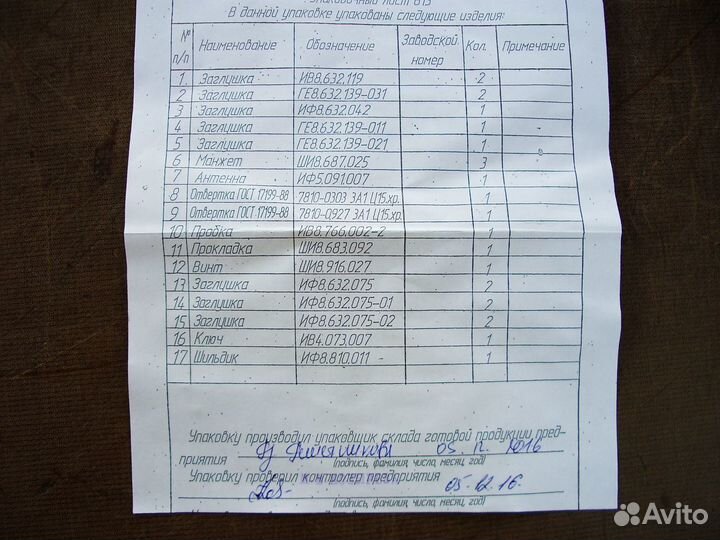 Упаковочный лист 013
В данной упаковке упакованы следующие изделия:
№ п/п Наименование Обозначение Заводской номер Кол. Примечание
1 Заглушка ИВ8.632.119 2
2 Заглушка ГЕ8.632.139-031 2
3 Заглушка ИФ8.632.042 1
4 Заглушка ГЕ8.632.139-011 1
5 Заглушка ГЕ8.632.139-021 1
6 Манжет ШИ8.687.025 3
7 Антенна ИФ5.091.007 1
8 Отвертка ГОСТ 17199-88 7810-0303 3А1 Ц15.хр. 1
9 Отвертка ГОСТ 17199-88 7810-0927 3А1 Ц15.хр. 1
10 Пробка ИВ8.766.002-2 1
11 Прокладка ШИ8.683.092 1
12 Винт ШИ8.916.027 1
13 Заглушка ИФ8.632.075 2
14 Заглушка ИФ8.632.075-01 2
15 Заглушка ИФ8.632.075-02 2
16 Ключ ИВ4.073.007 1
17 Шильдик ИФ8.810.011 1
Упаковку производил упаковщик склада готовой продукции пред-
приятия 05. 12. 2016
(подпись, фамилия, число, месяц, год)
Упаковку проверил контролер предприятия
05.12.16.
(подпись, фамилия, число, месяц, год)
Avito